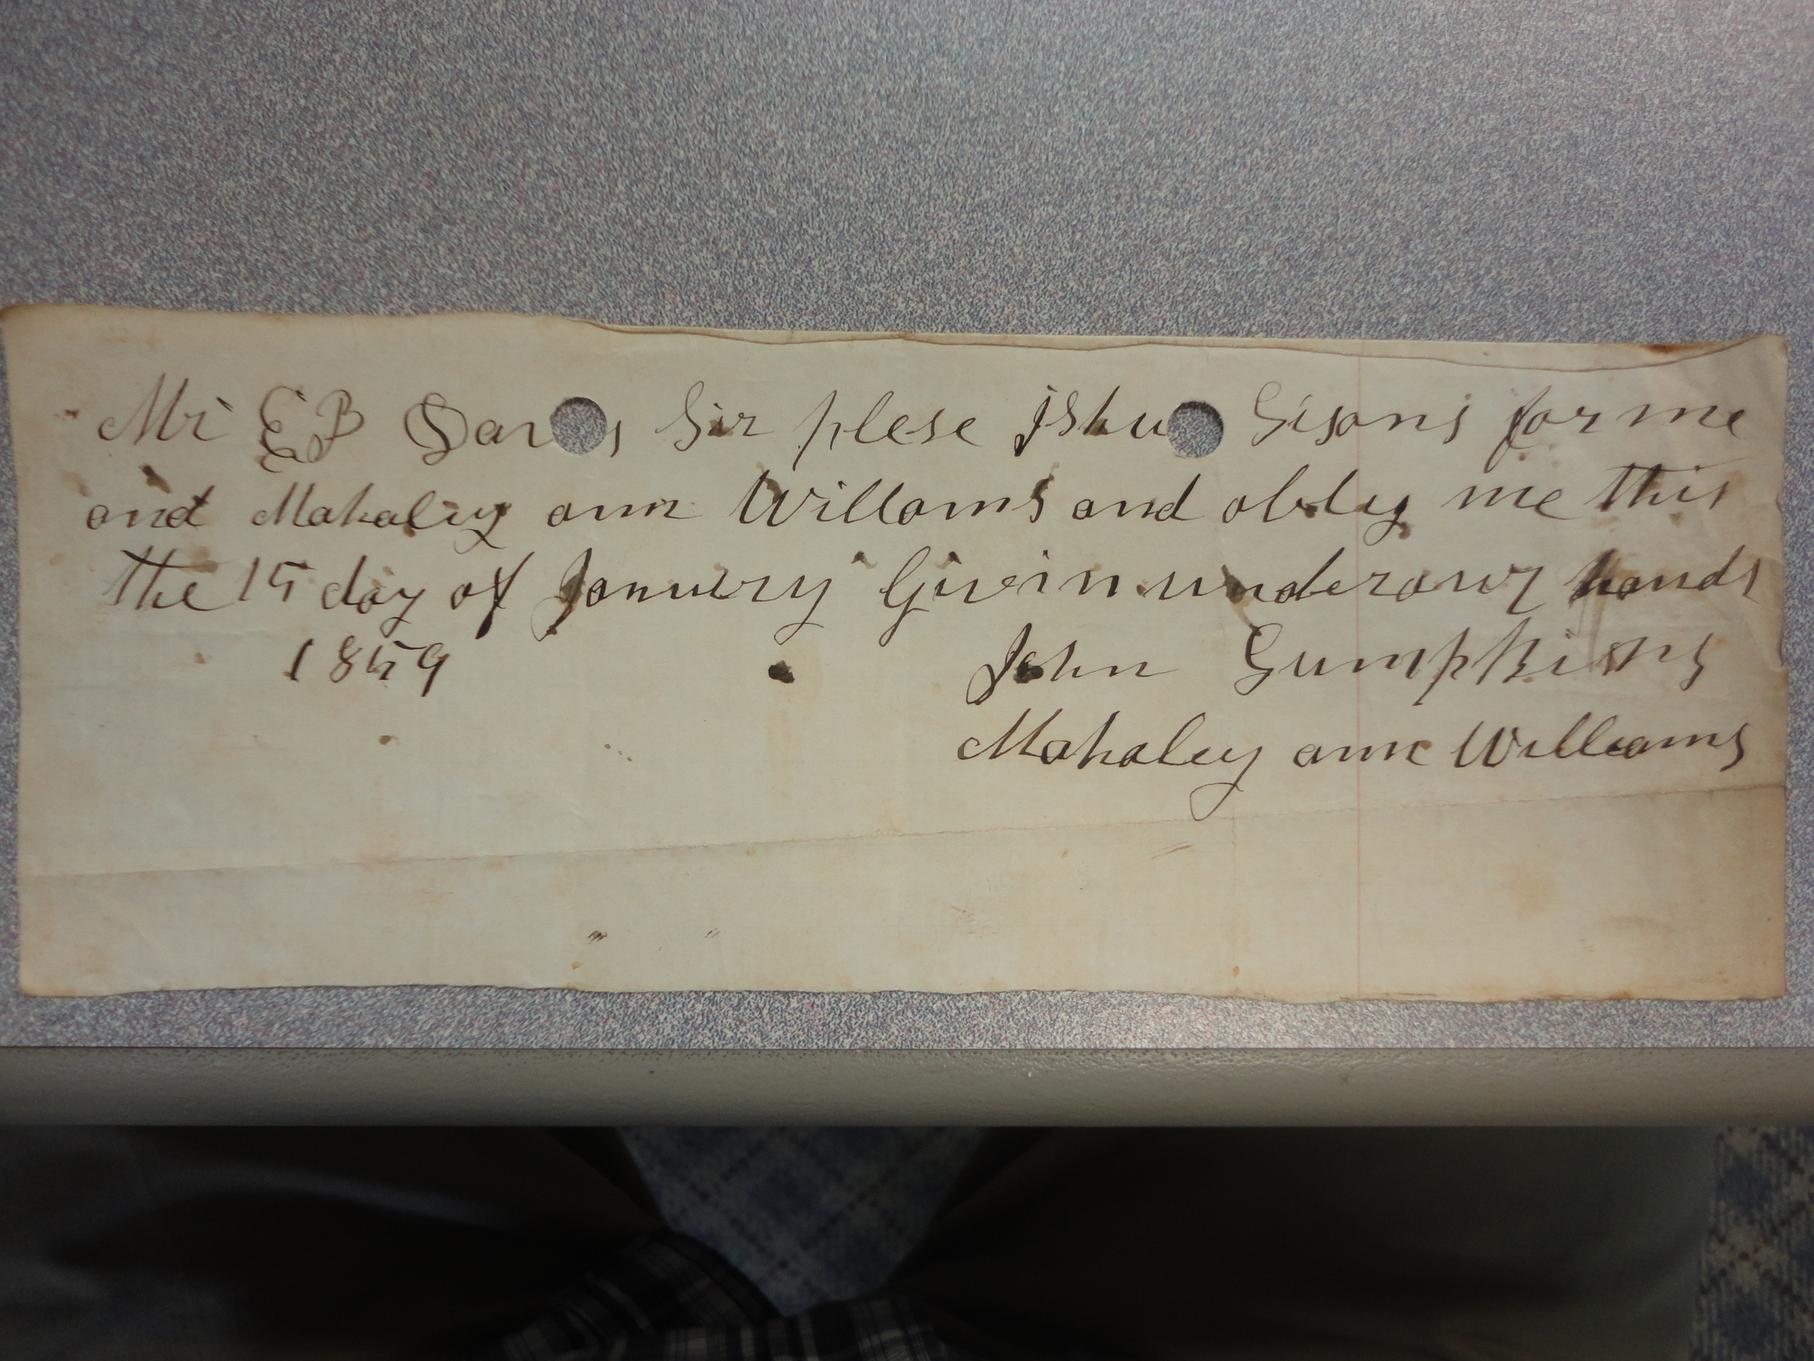 Mr E B Dav s Sir plese Ishu Lisons for me
and Mahaley ann Willams and obley me this
the 15 day of Janurry Givin under owr hands
1859 John Lumpkins
Mahaley ann Williams